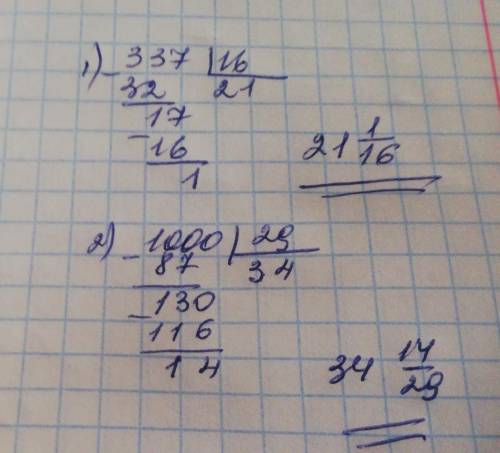 1) - 337 | 16
32 21
17
- 16
1
21 1/16
2) - 1000 | 29
87 34
- 130
116
14
34 14/29